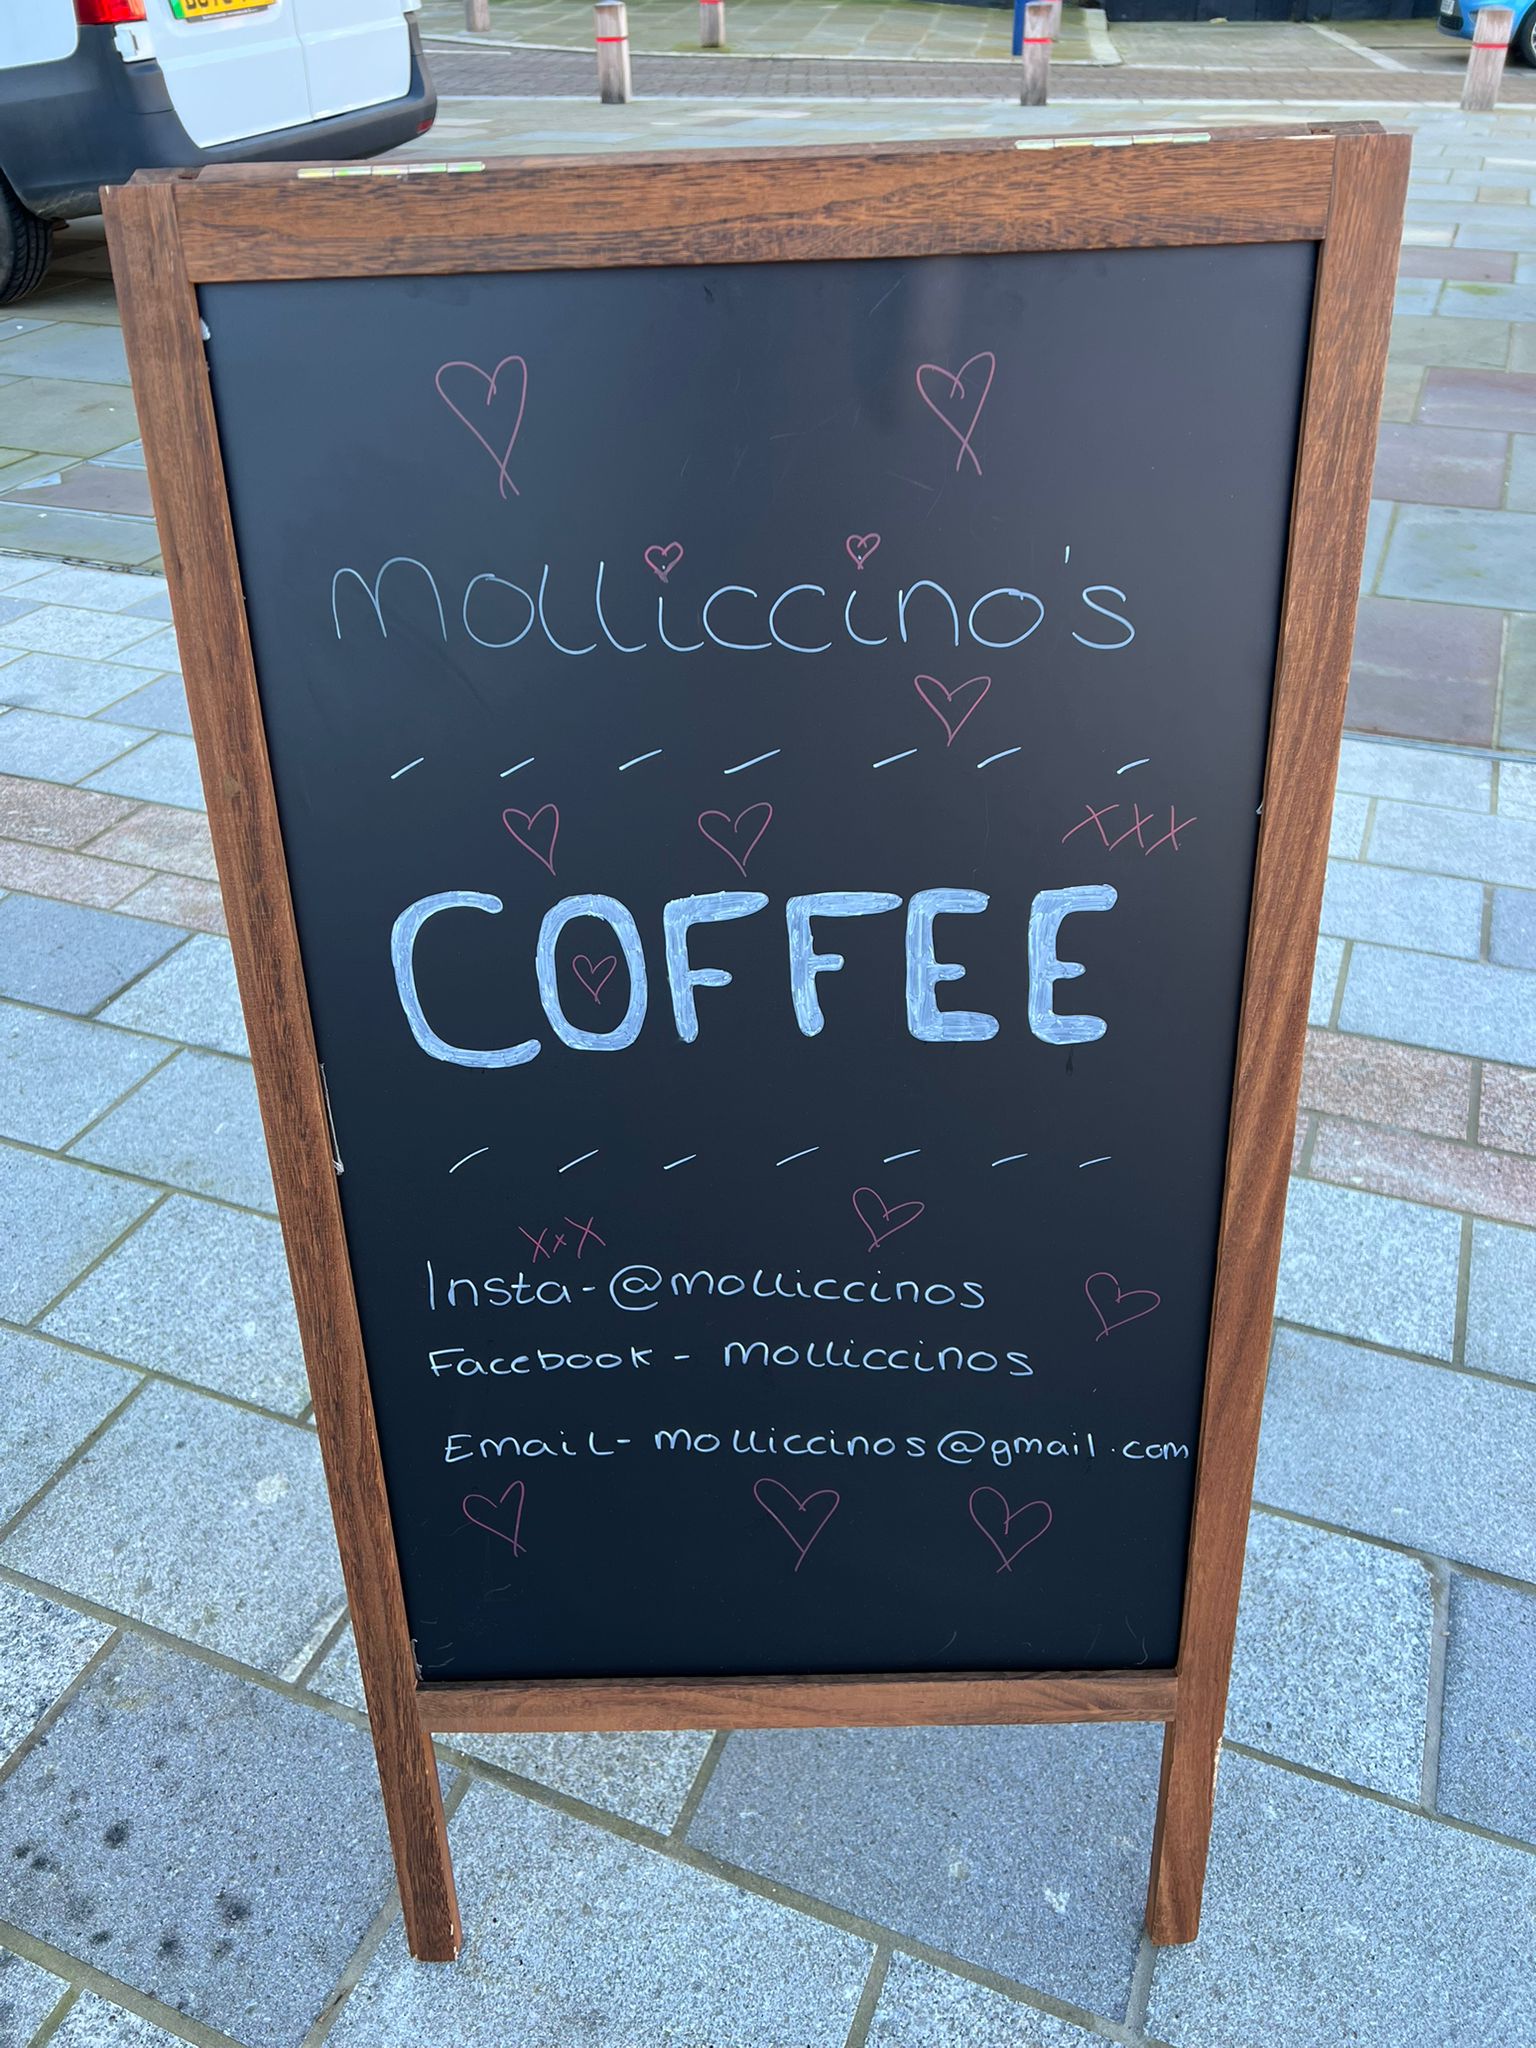 Molliccino's
xxx
COFFEE
xxx
Insta-@molliccinos
Facebook - molliccinos
Email- molliccinos@gmail.com